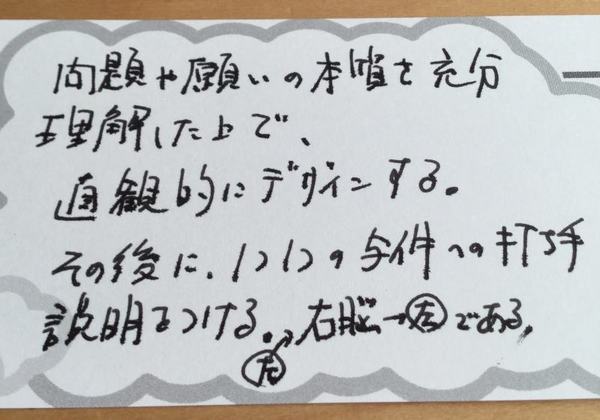 問題や願いの本質を充分
理解した上で、
直観的にデザインする。
その後に、1つ1つの与件への打ち手
説明をつける。右脳→左である。
左